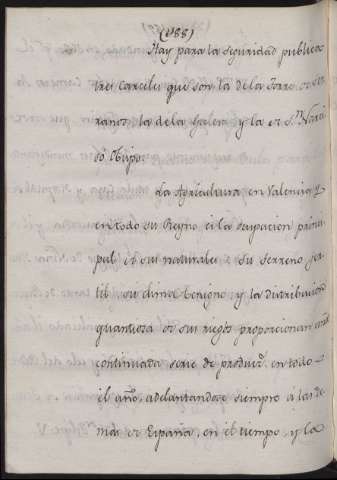 (188)
Hay para la seguridad publica
tres carceles que son la de la Torre de Ser
ranos, la de la Galera y la de Sn. Narci
so Obispo.
La Agricultura en Valencia y
en todo su Reyno es la ocupacion princi
pal de sus naturales: su terreno fer
til, su clima benigno, y la distribucion
quantiosa de sus riegos proporcionan una
continuada serie de produc.s en todo
el año, adelantandose siempre á las de
mas de España, en el tiempo, y la